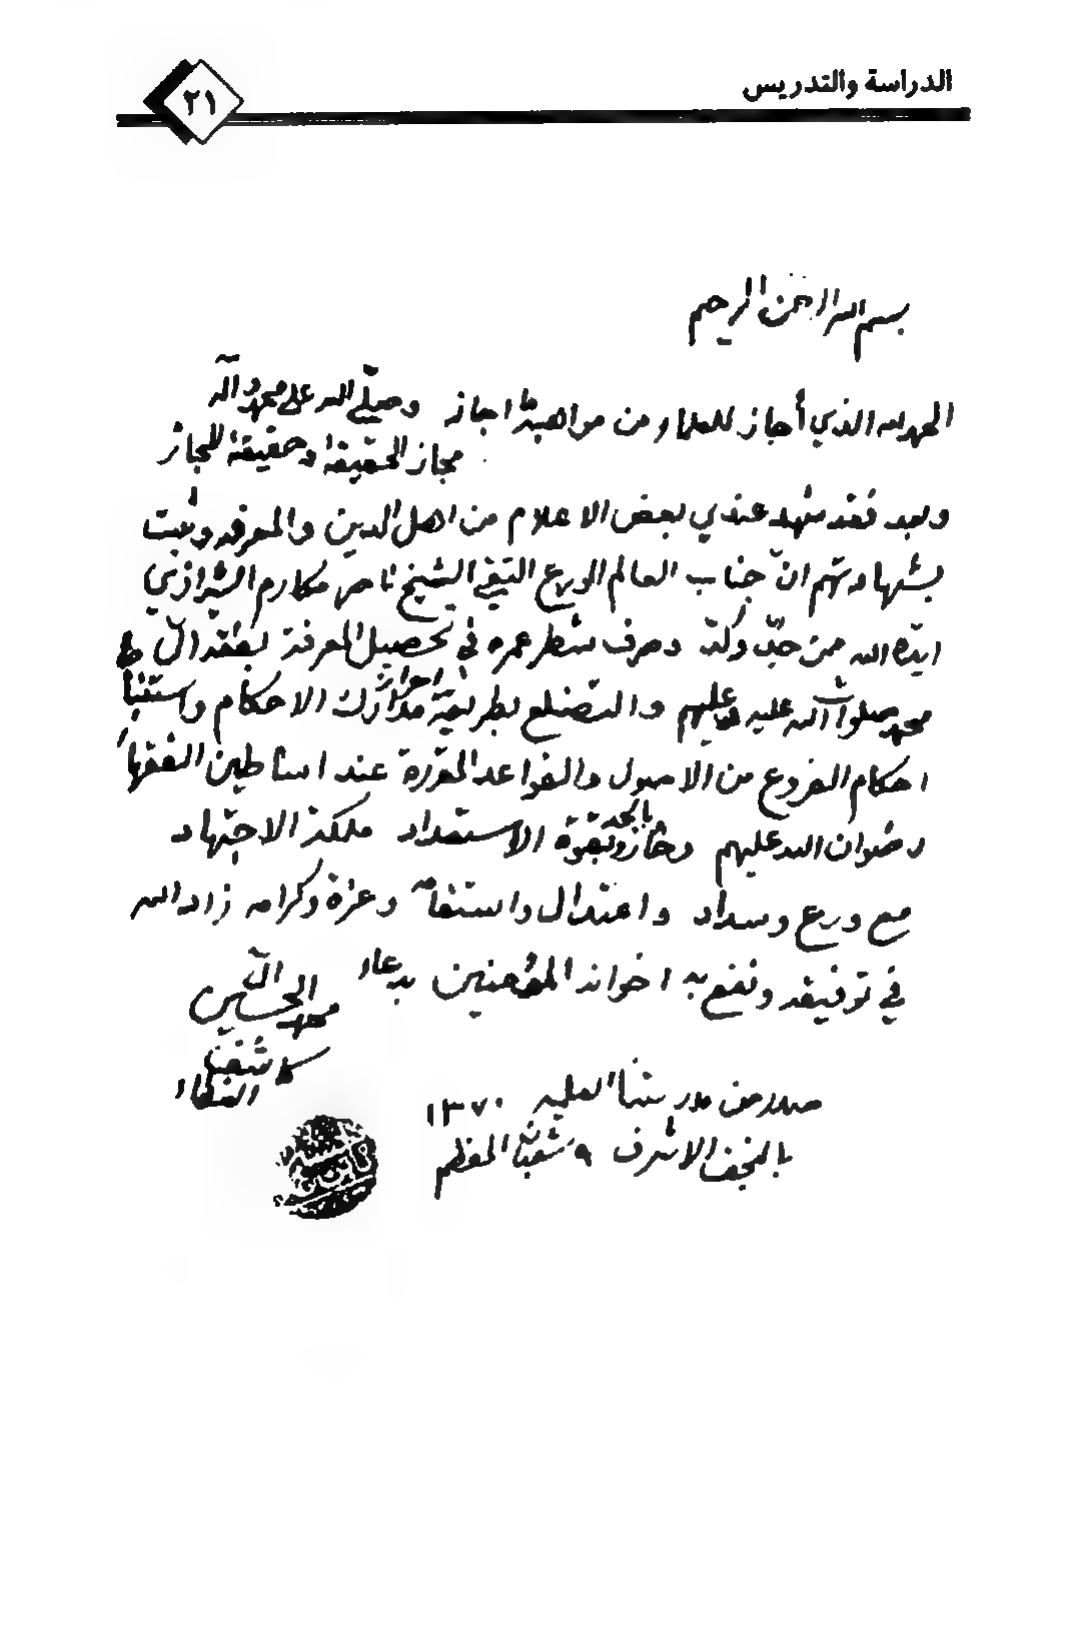 الدراسة والتدريس
٢١
بسم الله الرحمن الرحيم
الحمد لله الذي أجاز للعلماء من مواهبه ما اجاز وصلّى الله على محمد وآله
مجاز الحقيقة وحقيقة المجاز
وبعد فقد شهد عندي بعض الاعلام من اهل الدين والمعرفه وثبت
بشهادتهم انّ جناب العالم الورع التقي الشيخ ناصر مكارم الشيرازي
ايّده الله ممن جدّ وكدّ وصرف شطر عمره في تحصيل المعرفة بفقه آل
محمد صلوات الله عليه وعليهم والتضلع بطريقة احراز مدارك الاحكام واستنباط
احكام الفروع من الاصول والقواعد المقررة عند اساطين الفقهاء
رضوان الله عليهم وحاز بالجد وبقوة الاستعداد ملكة الاجتهاد
مع ورع وسداد واعتدال واستقامه وعزة وكرامه زاد الله
في توفيقه ونفع به اخوانه المؤمنين بدعاء
محمد الحسين آل
كاشف
الغطاء
صدر من مدرستنا العلميه ١٣٧٠
بالنجف الاشرف ٩ شعبان المعظم